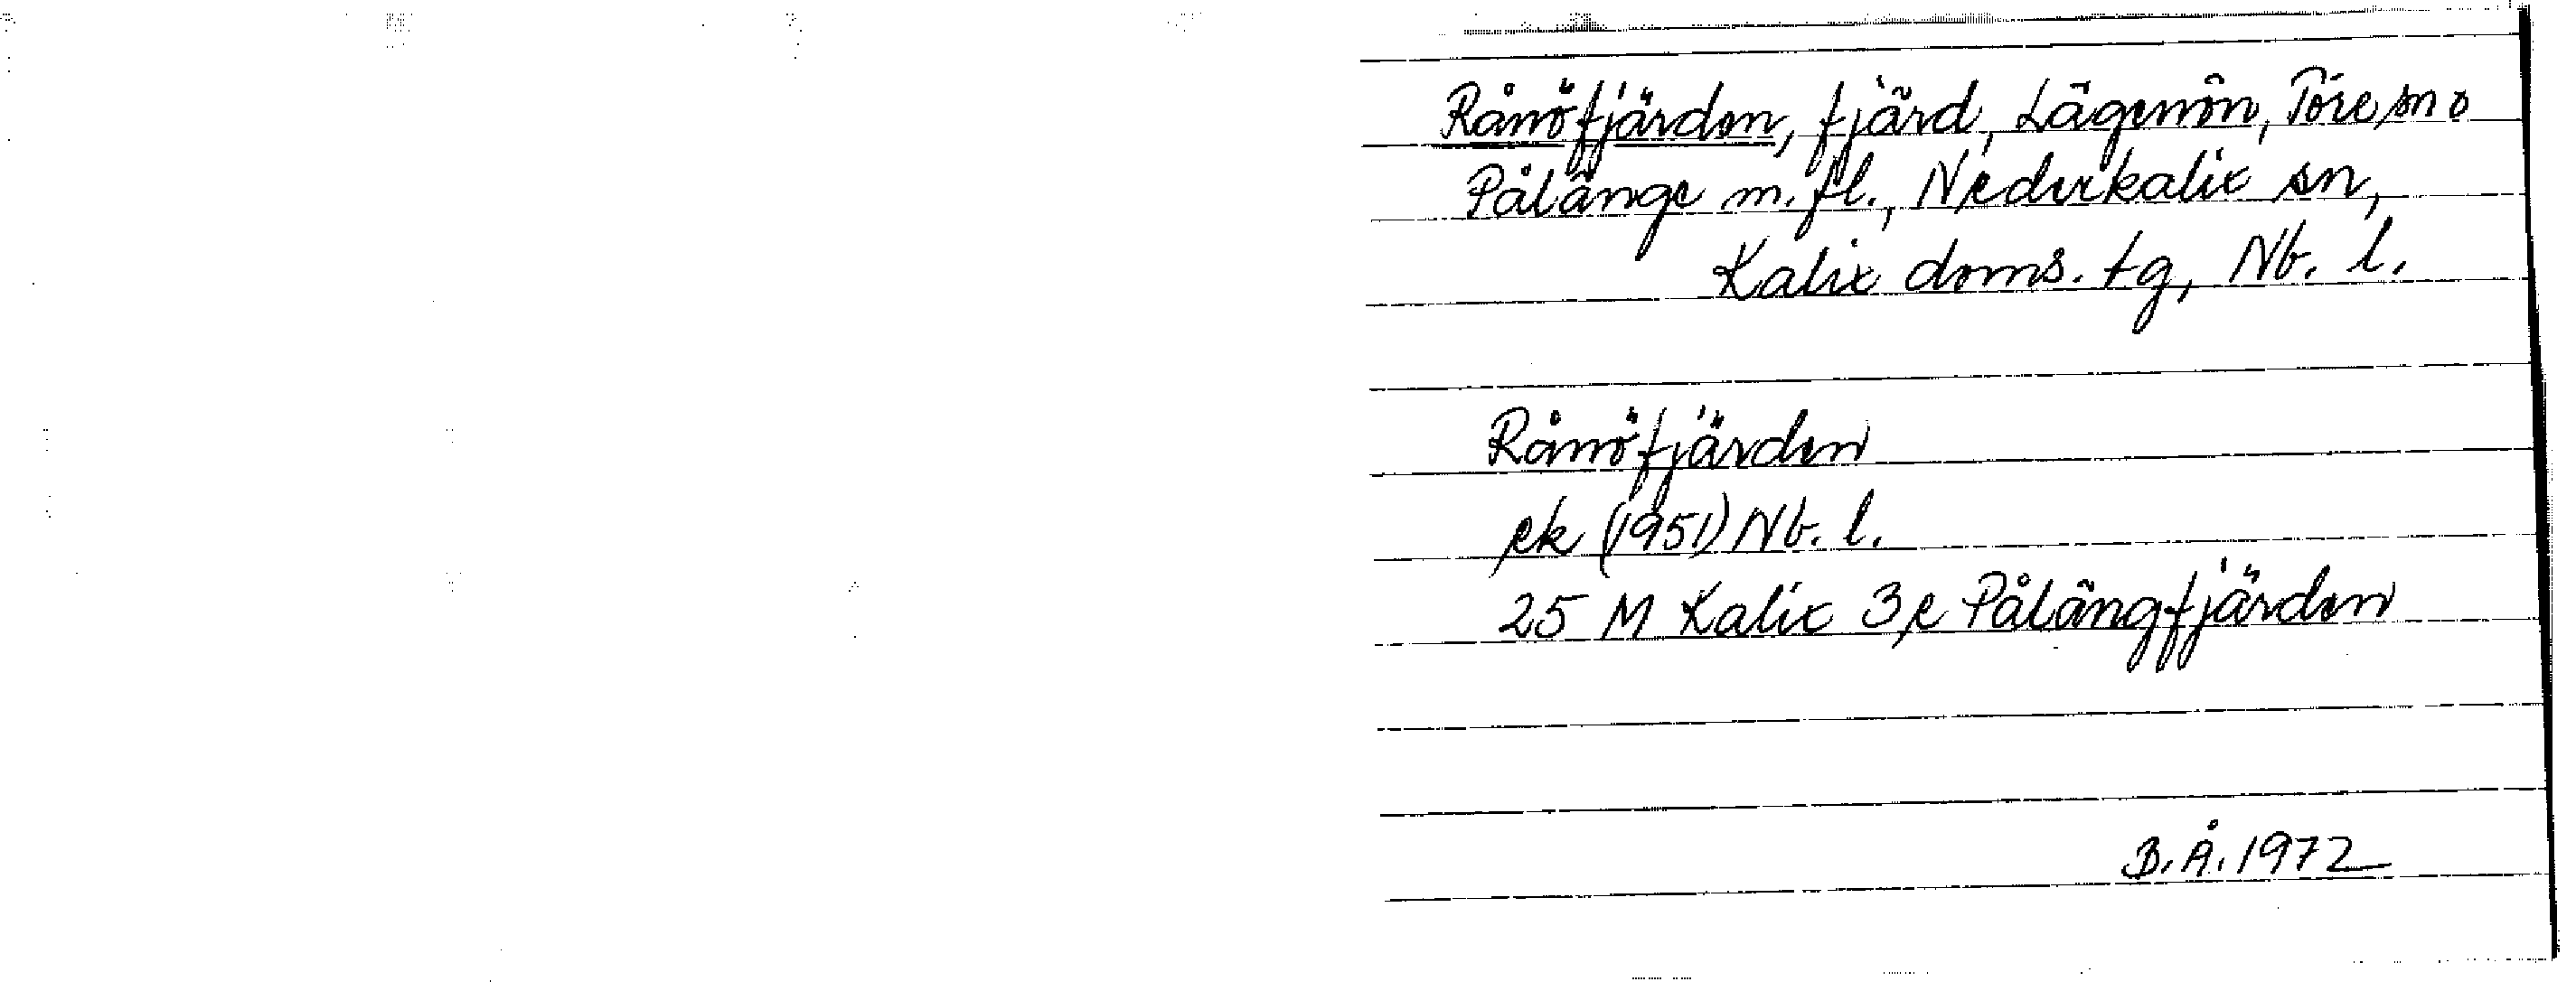 Rånöfjärden, fjärd, Lägenön, Töre sn o
Pålänge m. fl., Nederkalix sn,
Kalix doms. tg, Nb. l.
Rånöfjärden
ek (1951) Nb. l.
25 M Kalix 3 e Pålängfjärden
B. Å. 1972